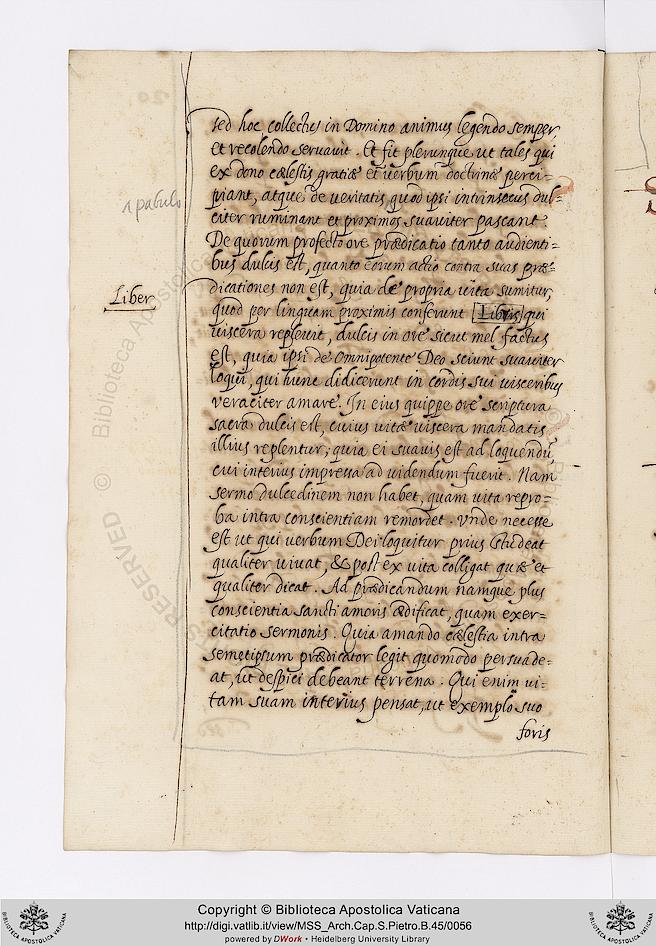 sed hoc collectus in Domino animus legendo semper,
et recolendo seruauit. Et fit plerunque ut tales qui
ex dono cælestis gratiæ et uerbum doctrinæ perci-
piant, atque de veritatis quod ipsi intrinsecus dul-
pabulo
citer ruminant et proximos suauiter pascant.
De quorum profecto ore prædicatio tanto audienti-
bus dulcis est, quanto eorum actio contra suas præ-
dicationes non est, quia de propria vita sumitur,
Liber
quod per linguam proximis conferunt Libris qui
viscera repleuit, dulcis in ore sicut mel factus
est, quia ipsi de Omnipotente Deo sciunt suauiter
loqui, qui hunc didicerunt in cordis sui uisceribus
veraciter amare. In eius quippe ore scriptura
sacra dulcis est, cuius vitæ viscera mandatis
illius replentur; quia ei suavis est ad loquendū
cui interius impressa ad videndum fuerit. Nam
sermo dulcedinem non habet, quam vita repro-
ba intra conscientiam remordet. Vnde necesse
est ut qui uerbum Dei loquitur prius studeat
qualiter vivat, & post ex vita colligat quæ et
qualiter dicat. Ad prædicandum namque plus
conscientia sancti amoris ædificat, quam exer-
citatio sermonis. Quia amando cælestia intra
semetipsum prædicator legit quomodo persuade-
at, ut despici debeant terrena. Qui enim vi-
tam suam interius pensat, ut exemplo suo
foris
Copyright © Biblioteca Apostolica Vaticana
http://digi.vatlib.it/view/MSS_Arch.Cap.S.Pietro.B.45/0056
powered by DWork • Heidelberg University Library